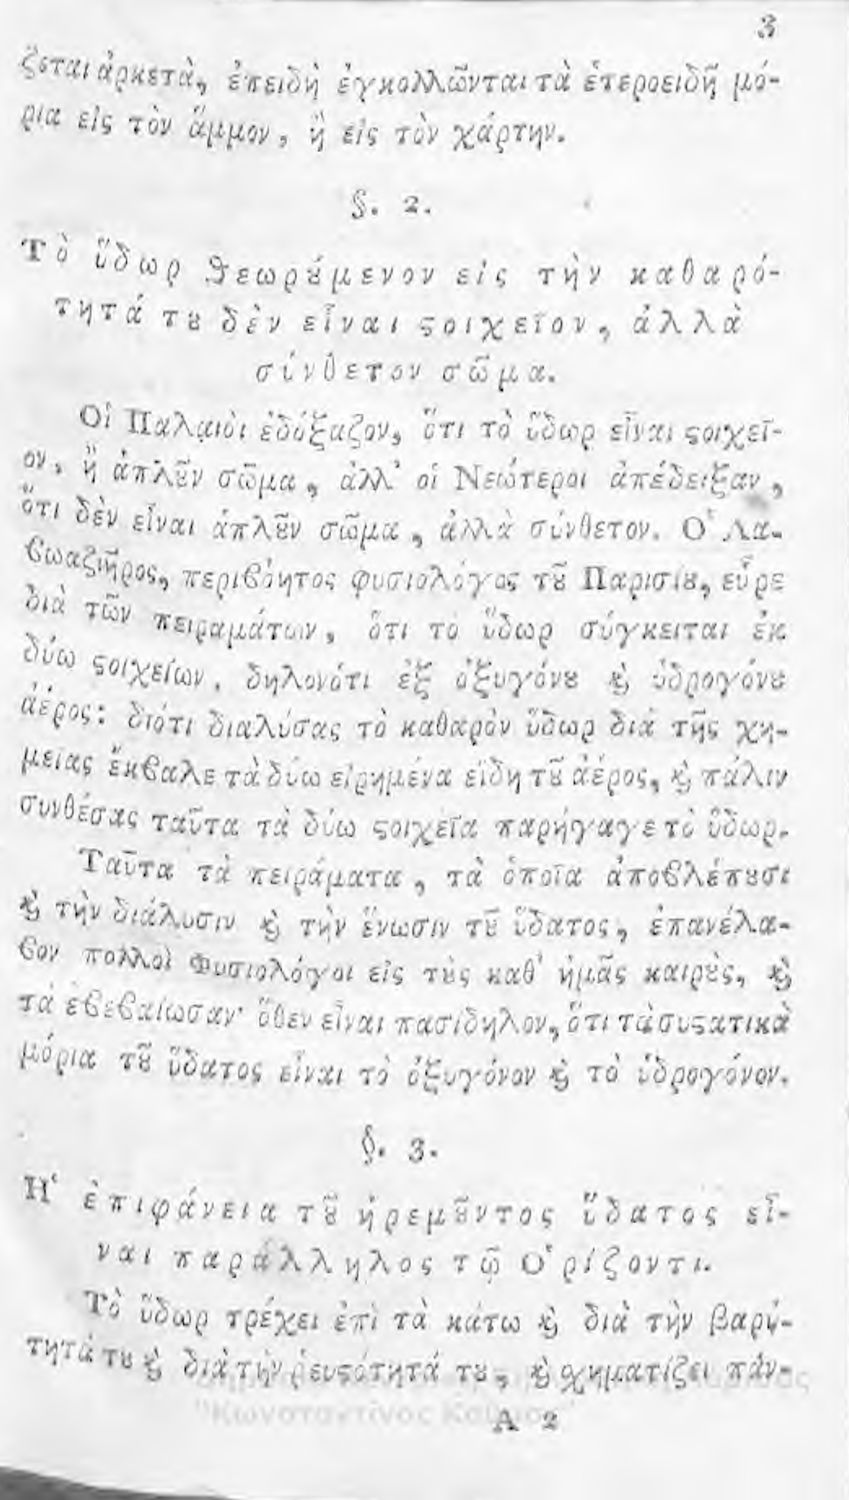 3
ζεται ἀρκετὰ, ἐπειδὴ ἐγκολλῶνται τὰ ἑτεροειδῆ μό-
ρια εἰς τὸν ἄμμον, ἢ εἰς τὸν χάρτην.
§. 2.
Τὸ ὕδωρ ϑεωρȣ́μενον εἰς τὴν καθαρό-
τητά τȣ δὲν εἶναι ϛοιχεῖον, ἀλλὰ
σύνθετον σῶμα.
Οἱ Παλαιοὶ ἐδόξαζον, ὅτι τὸ ὕδωρ εἶναι ϛοιχεῖ-
ον, ἢ ἁπλȣ͂ν σῶμα, ἀλλ' οἱ Νεώτεροι ἀπέδειξαν,
ὅτι δὲν εἶναι ἁπλȣ͂ν σῶμα, ἀλλὰ σύνθετον. Ὁ Λα-
ϐωαζιῆρος, περιϐόητος φυσιολόγος τȣ͂ Παρισίȣ, εὗρε
διὰ τῶν πειραμάτων, ὅτι τὸ ὕδωρ σύγκειται ἐκ
δύω ϛοιχείων, δηλονότι ἐξ ὀξυγόνȣ ϗ̀ ὑδρογόνȣ
ἀέρος: διότι διαλύσας τὸ καθαρὸν ὕδωρ διὰ τῆς χη-
μείας ἔκϐαλε τὰ δύω εἰρημένα εἴδη τȣ͂ ἀέρος, ϗ̀ πάλιν
συνθέσας ταῦτα τὰ δύω ϛοιχεῖα παρήγαγε τὸ ὕδωρ.
Ταῦτα τὰ πειράματα, τὰ ὁποῖα ἀποϐλέπȣσι
ϗ̀ τὴν διάλυσιν ϗ̀ τὴν ἕνωσιν τȣ͂ ὕδατος, ἐπανέλα-
ϐον πολλοὶ Φυσιολόγοι εἰς τȣ̀ς καθ' ἡμᾶς καιρȣ̀ς, ϗ̀
τὰ ἐϐεϐαίωσαν· ὅθεν εἶναι πασίδηλον, ὅτι τὰ συϛατικὰ
μόρια τȣ͂ ὕδατος εἶναι τὸ ὀξυγόνον ϗ̀ τὸ ὑδρογόνον.
§. 3.
Ἡ ἐπιφάνεια τȣ͂ ἠρεμȣ͂ντος ὕδατος εἶ-
ναι παράλληλος τῷ Ὁρίζοντι.
Τὸ ὕδωρ τρέχει ἐπὶ τὰ κάτω ϗ̀ διὰ τὴν βαρύ-
τητά τȣ ϗ̀ διὰ τὴν ῥευϛότητά τȣ, ϗ̀ σχηματίζει πάν-
"Κωνσταντίνος
Α 2